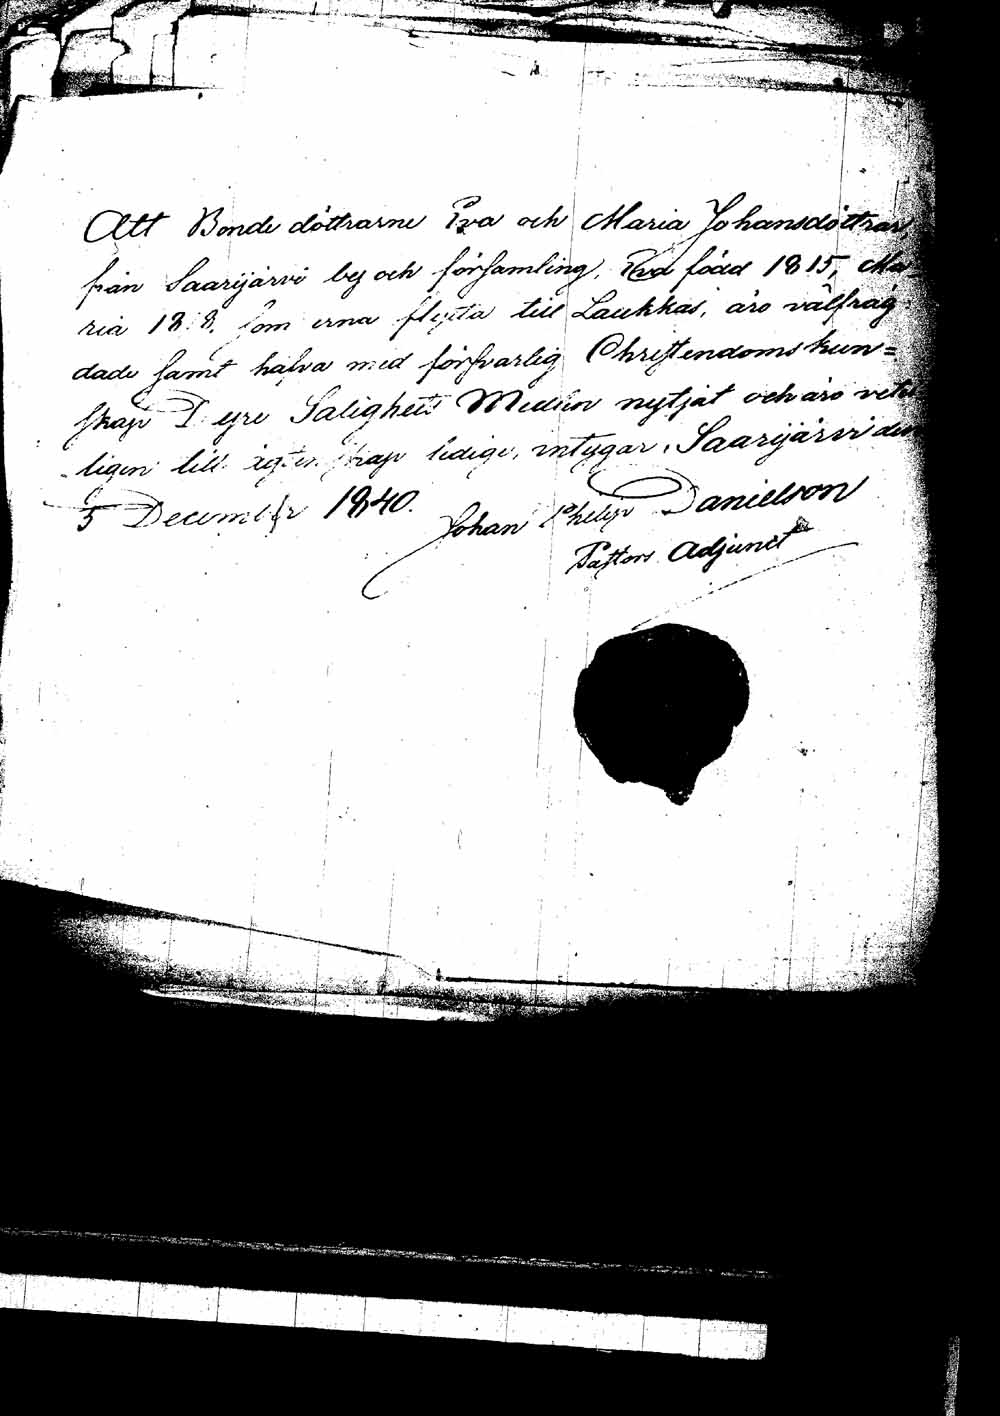 Att Bonde döttrarne Eva och Maria Johansdöttrar
från Saarijärvi by och församling, Eva född 1815, Ma-
ria 18 8, som ärna flytta till Laukkas, äro välfräg-
dade samt hafva med försvarlig Christendomskun=
skap Dyre Salighets Medlen nytjat och äro veter-
ligen till ägtenskap lediga, intygar, Saarijärvi den
5 December 1840. Johan Philip Danielson
Pastors Adjunct